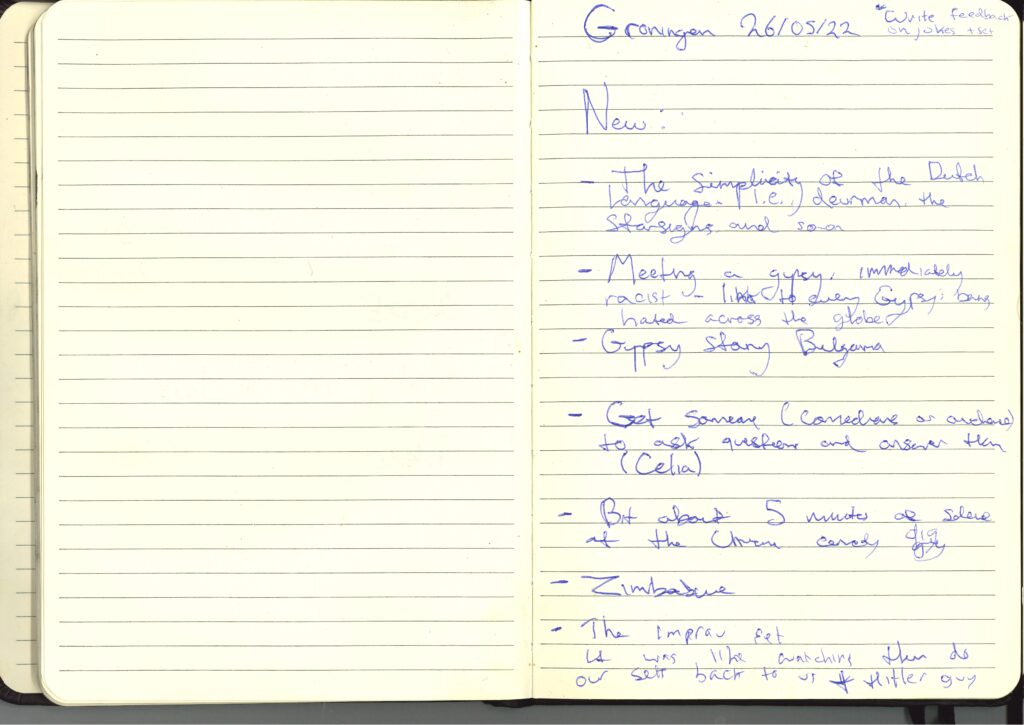 Groningen 26/05/22
*Write feedback
on jokes + set
New:
- The simplicity of the Dutch
Language. (i.e.,) deurman, the
Starsigns and so on
- Meeting a gypsy, immediately
racist - to every Gypsy: being
hated across the globe
- Gypsy story Bulgaria
- Get someone (comedians or audience)
to ask questions and answer them
(Celia)
- Bit about 5 minutes of silence
at the comedy gig
guy
- Zimbabwe
- The Improv set
it was like watching them do
our sets back to us + Hitler guy